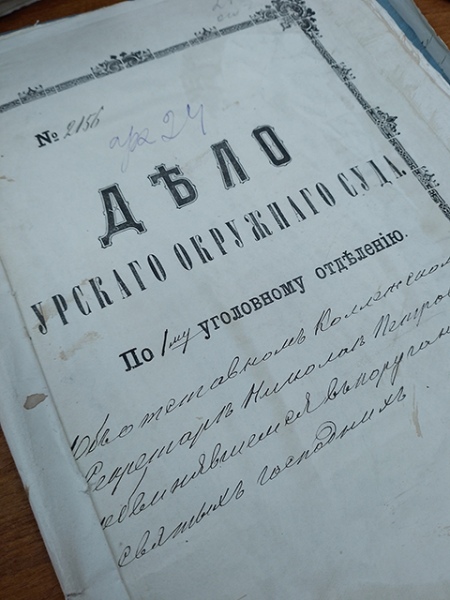 № 2156
арх 24
ДѢЛО
УРСКАГО ОКРУЖНАГО СУДА.
По 1му уголовному отдѣленію.
Объ отставномъ Коллежском
Секретарѣ Николаѣ Петров
обвинявшемся въ поруган
святыхъ господнихъ